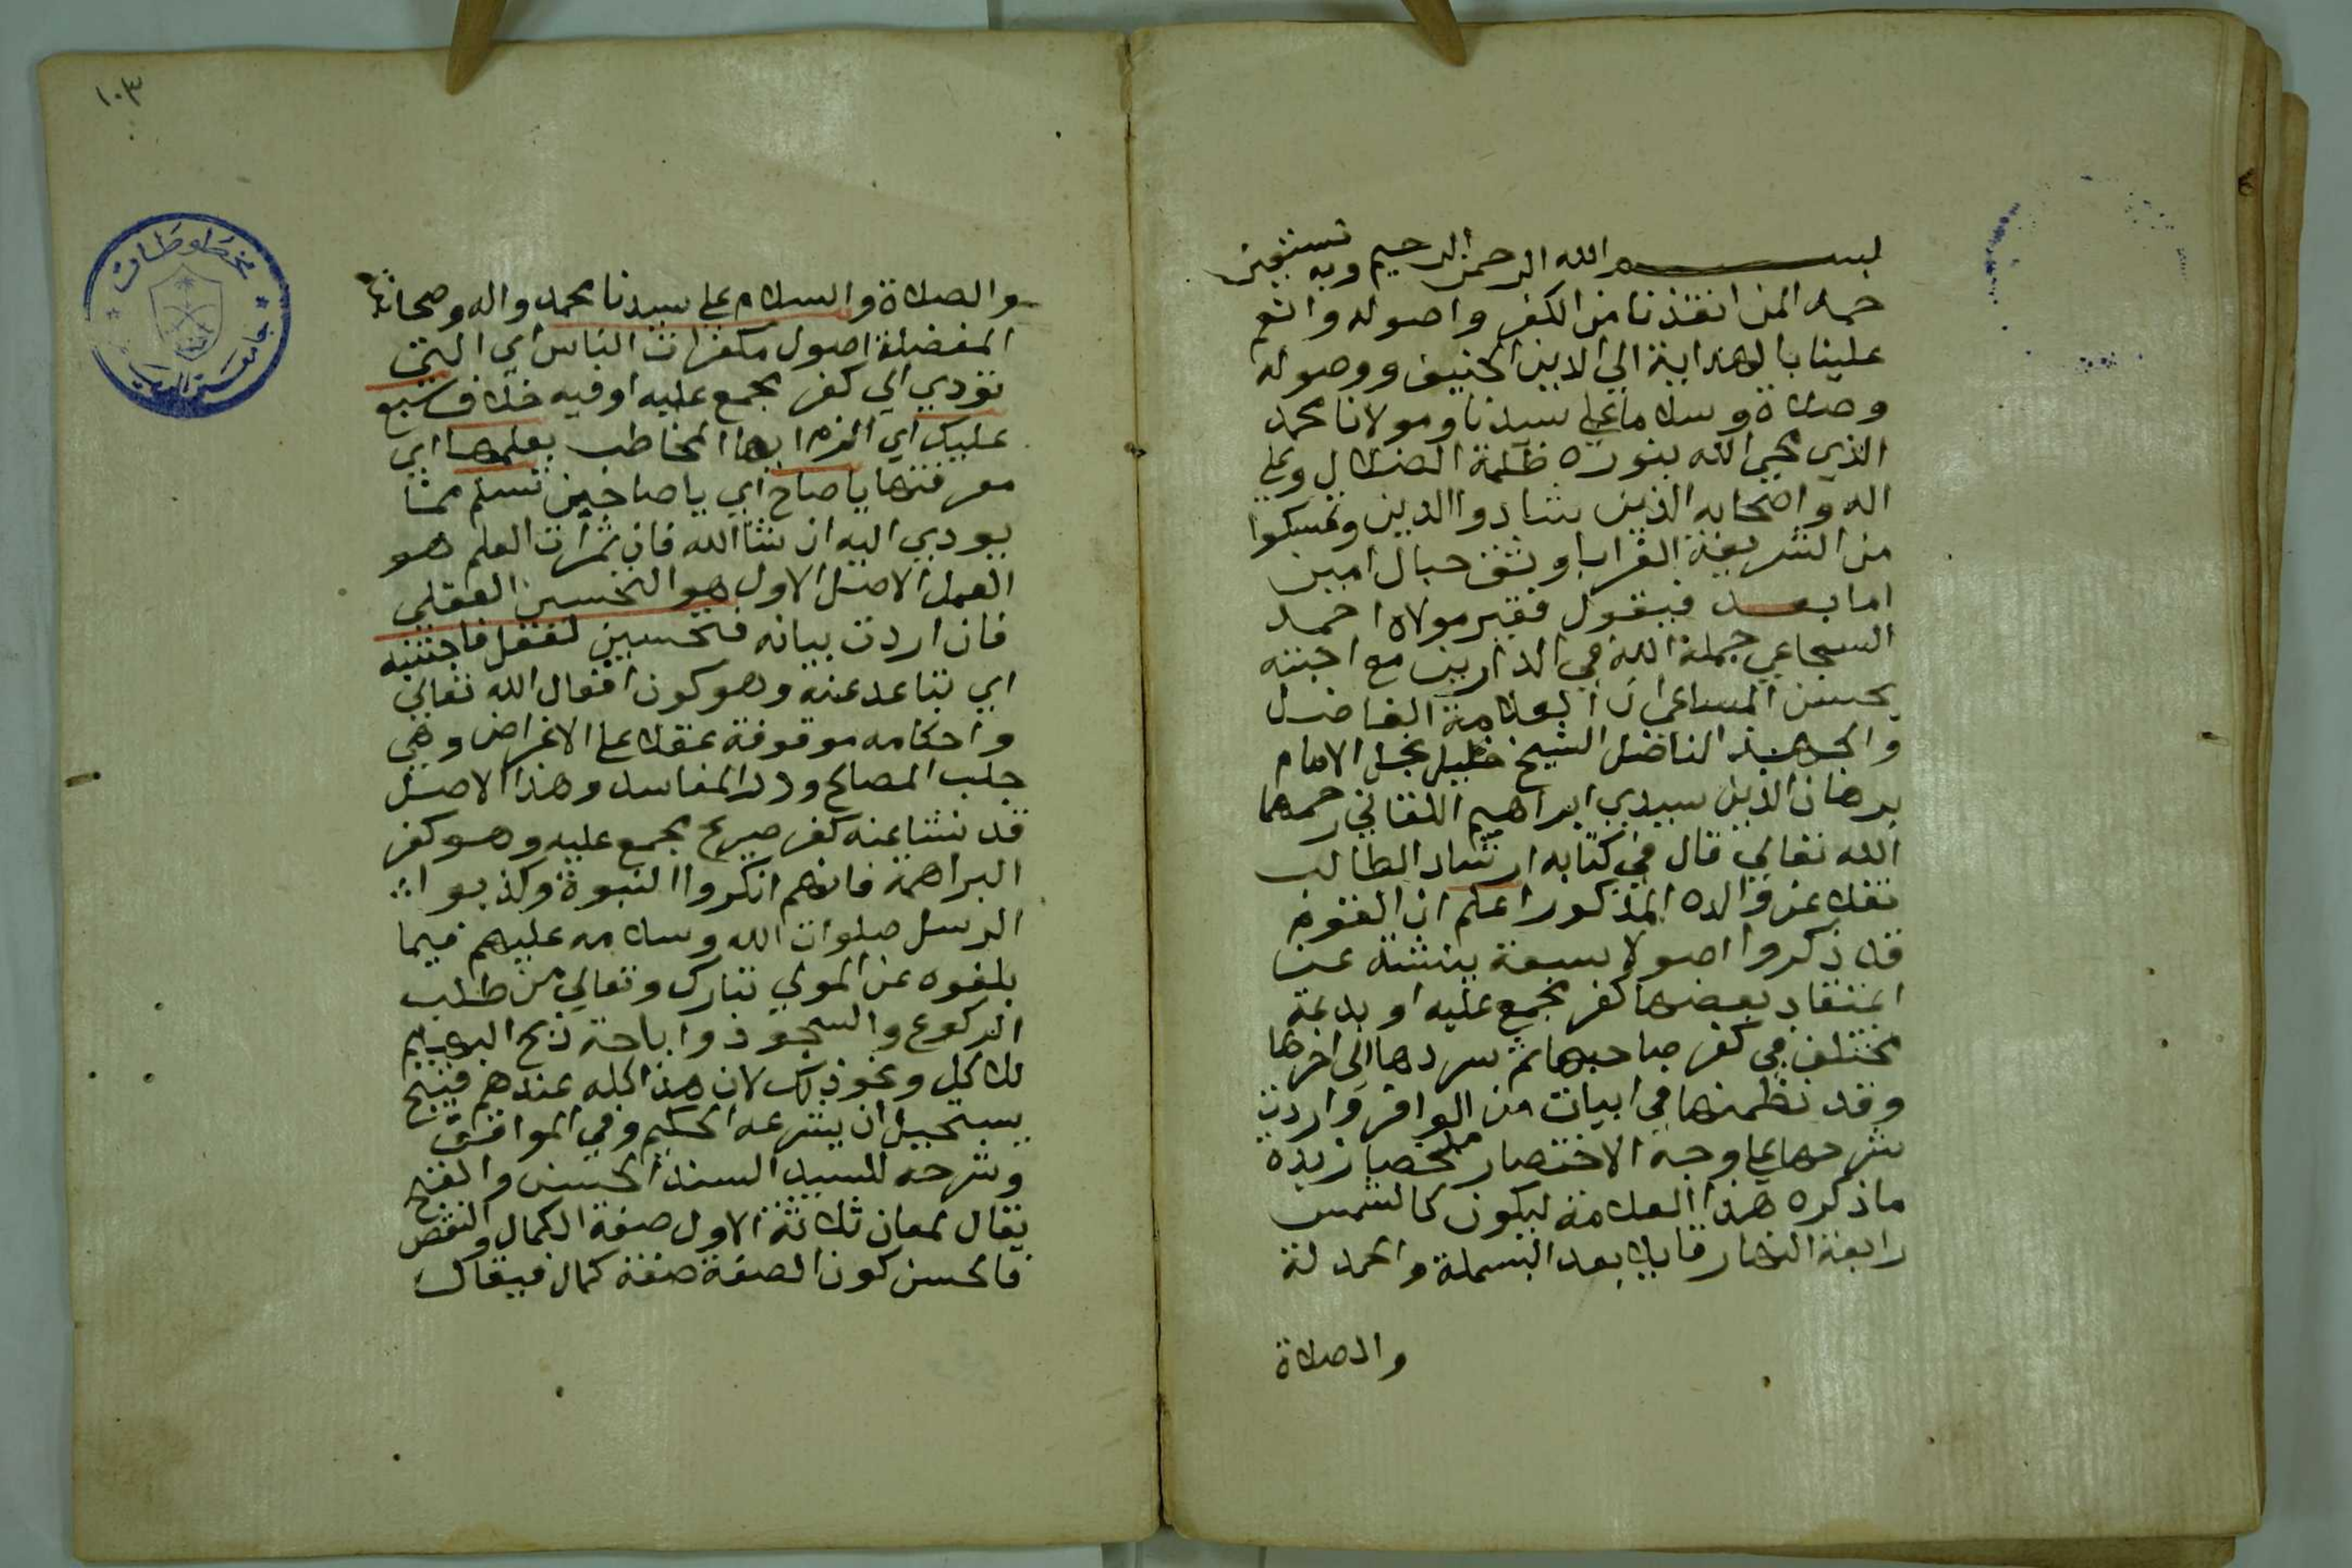 بسم الله الرحمن الرحيم وبه نستعين
حمدا لمن انقذنا من الكفر واصوله وانعم
علينا بالهداية الي الدين الحنيف ووصوله
وصلاة وسلاما علي سيدنا ومولانا محمد
الذي محي الله بنوره ظلمة الضلال وعلي
اله واصحابه الذين شادوا الدين وتمسكوا
من الشريعة الغرا باوثق حبال امين
اما بعد فيقول فقير مولاه احمد
السجاعي جمله الله في الدارين مع احبته
بحسن المساعي ان العلامة الفاضل
والجهبذ الناضل الشيخ خليل نجل الامام
برهان الدين سيدي ابراهيم اللقاني رحمهما
الله تعالي قال في كتابه ارشاد الطالب
نقلا عن والده المذكور اعلم ان القوم
قد ذكروا اصولا سبعة ينشئه عن
اعتقاد بعضها كفر مجمع عليه او بدعة
مختلف في كفر صاحبها ثم سردها الي اخرها
وقد نظمتها في ابيات من الوافر واردت
شرحها علي وجه الاختصار ملخصا زبدة
ما ذكره هذا العلامة ليكون كالشمس
رابعة النهار قايلا بعد البسملة والحمد لة
والصلاة
١٠٣
والصلاة والسلام علي سيدنا محمد واله وصحابته
المفضلة اصول مكفرات الناس اي التي
تودي الي كفر مجمع عليه او فيه خلاف سبع
عليك اي الزم ايها المخاطب بعلمها اي
معرفتها يا صاح اي يا صاحبي تسلم مما
يودي اليه ان شا الله فان ثمرات العلم هو
العمل الاصل الاول هو التحسين العقلي
فان اردت بيانه فتحسين لعقل فاجتنبه
اي تباعد عنه وهو كون افعال الله تعالي
واحكامه موقوفة عقلا علي الاغراض وهي
جلب المصالح ودرا المفاسد وهذا الاصل
قد نشا عنه كفر صريح مجمع عليه وهو كفر
البراهمة فانهم انكروا النبوة وكذبوا
الرسل صلوات الله وسلامه عليهم فيما
بلغوه عن المولي تبارك وتعالي من طلب
الركوع والسجود واباحة ذبح البهايم
للاكل ونحو ذلك لان هذا كله عندهم قبيح
يستحيل ان يشرعه الحكيم وفي المواقف
وشرحه للسيد السند الحسن والقبح
يقال لمعان ثلاثة الاول صفة الكمال والنقص
فالحسن كون الصفة صفة كمال فيقال
مخطوطات